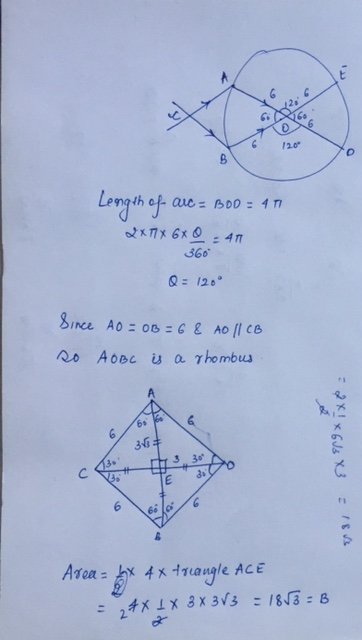 A
E
6
6
C
120°
60
60°
O
6
B
6
120°
D
Length of arc = BOD = 4π
2×π×6×θ/360° = 4π
θ = 120°
Since AO = OB = 6 & AO // CB
so AOBC is a rhombus
A
60° 60°
6
6
3√3
C
30°
30°
3
30°
30°
O
E
6
60° 60
6
B
Area = 1/2 × 4 × triangle ACE
= 4 × 1/2 × 3 × 3√3 = 18√3 = B